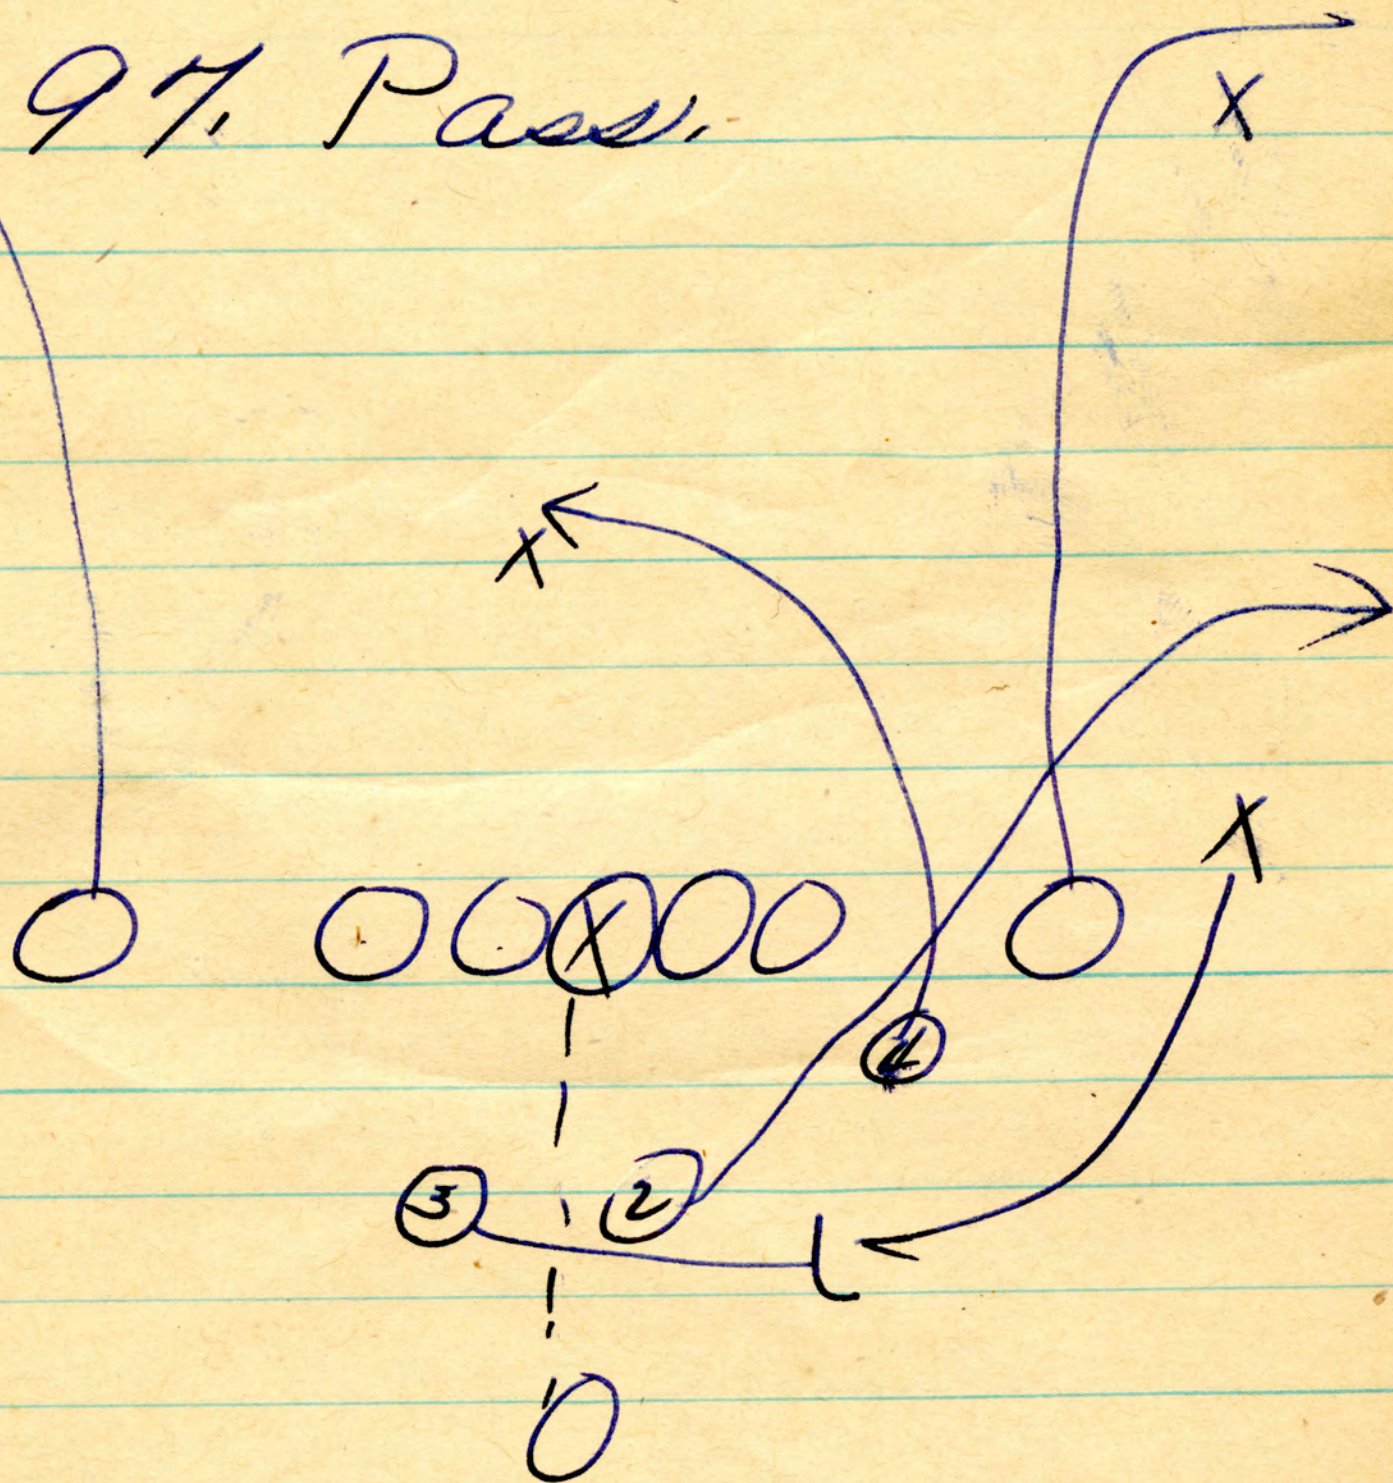 97. Pass.
X
X
X
X
3 2